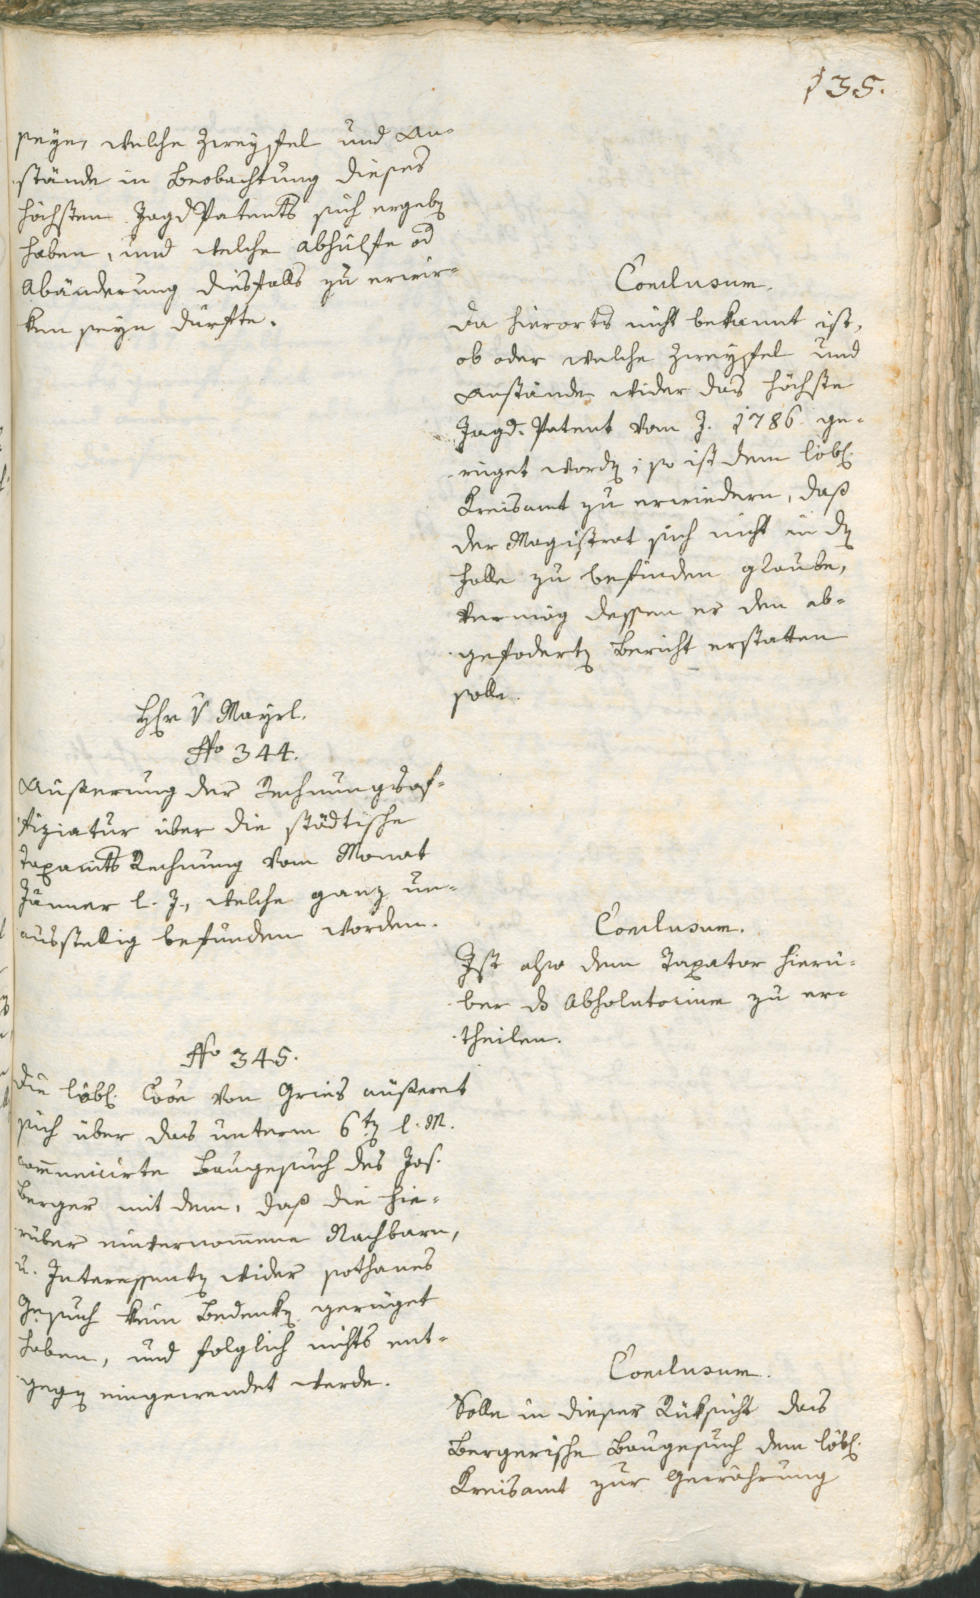 135.
seyen, welche Zweyfel und An-
stände in Beobachtung dieses
höchsten Jagd Patents sich ergeben
haben, und welche Abhülfe od
Abänderung diesfalls zu erwir-
ken seyn dürfte.
Conclusum.
Da hierorts nicht bekannt ist,
ob oder welche Zweyfel und
Anstände wider das höchste
Jagd-Patent vom J. 1786 ge-
rüget worden; so ist dem löbl.
Kreisamt zu erwiedern, daß
der Magistrat sich nicht in den
Falle zu befinden glaube,
vermög dessen er den ab-
geforderten Bericht erstatten
solle.
Hr v Mayrl.
No 344.
Äußerung der Rechnungsof-
fiziatur über die städtische
Taxamts Rechnung vom Monat
Jänner l. J., welche ganz un-
ausstellig befunden worden.
Conclusum.
Ist also dem Taxator hierü-
ber ds Absolutorium zu er-
theilen.
No 345.
Die löbl. Cõõn von Gries äußeret
sich über das unterm 6ten l. M.
com̄unicirte Baugesuch des Jos.
Berger mit dem, daß die hie-
rüber einvernom̄ene Nachbarn,
u. Interessenten wider sothanes
Gesuch kein Bedenken gerüget
haben, und folglich nichts ent-
gegen eingewendet werde.
Conclusum.
Solle in dieser Rüksicht das
Bergerische Baugesuch dem löbl.
Kreisamt zur Gewährung